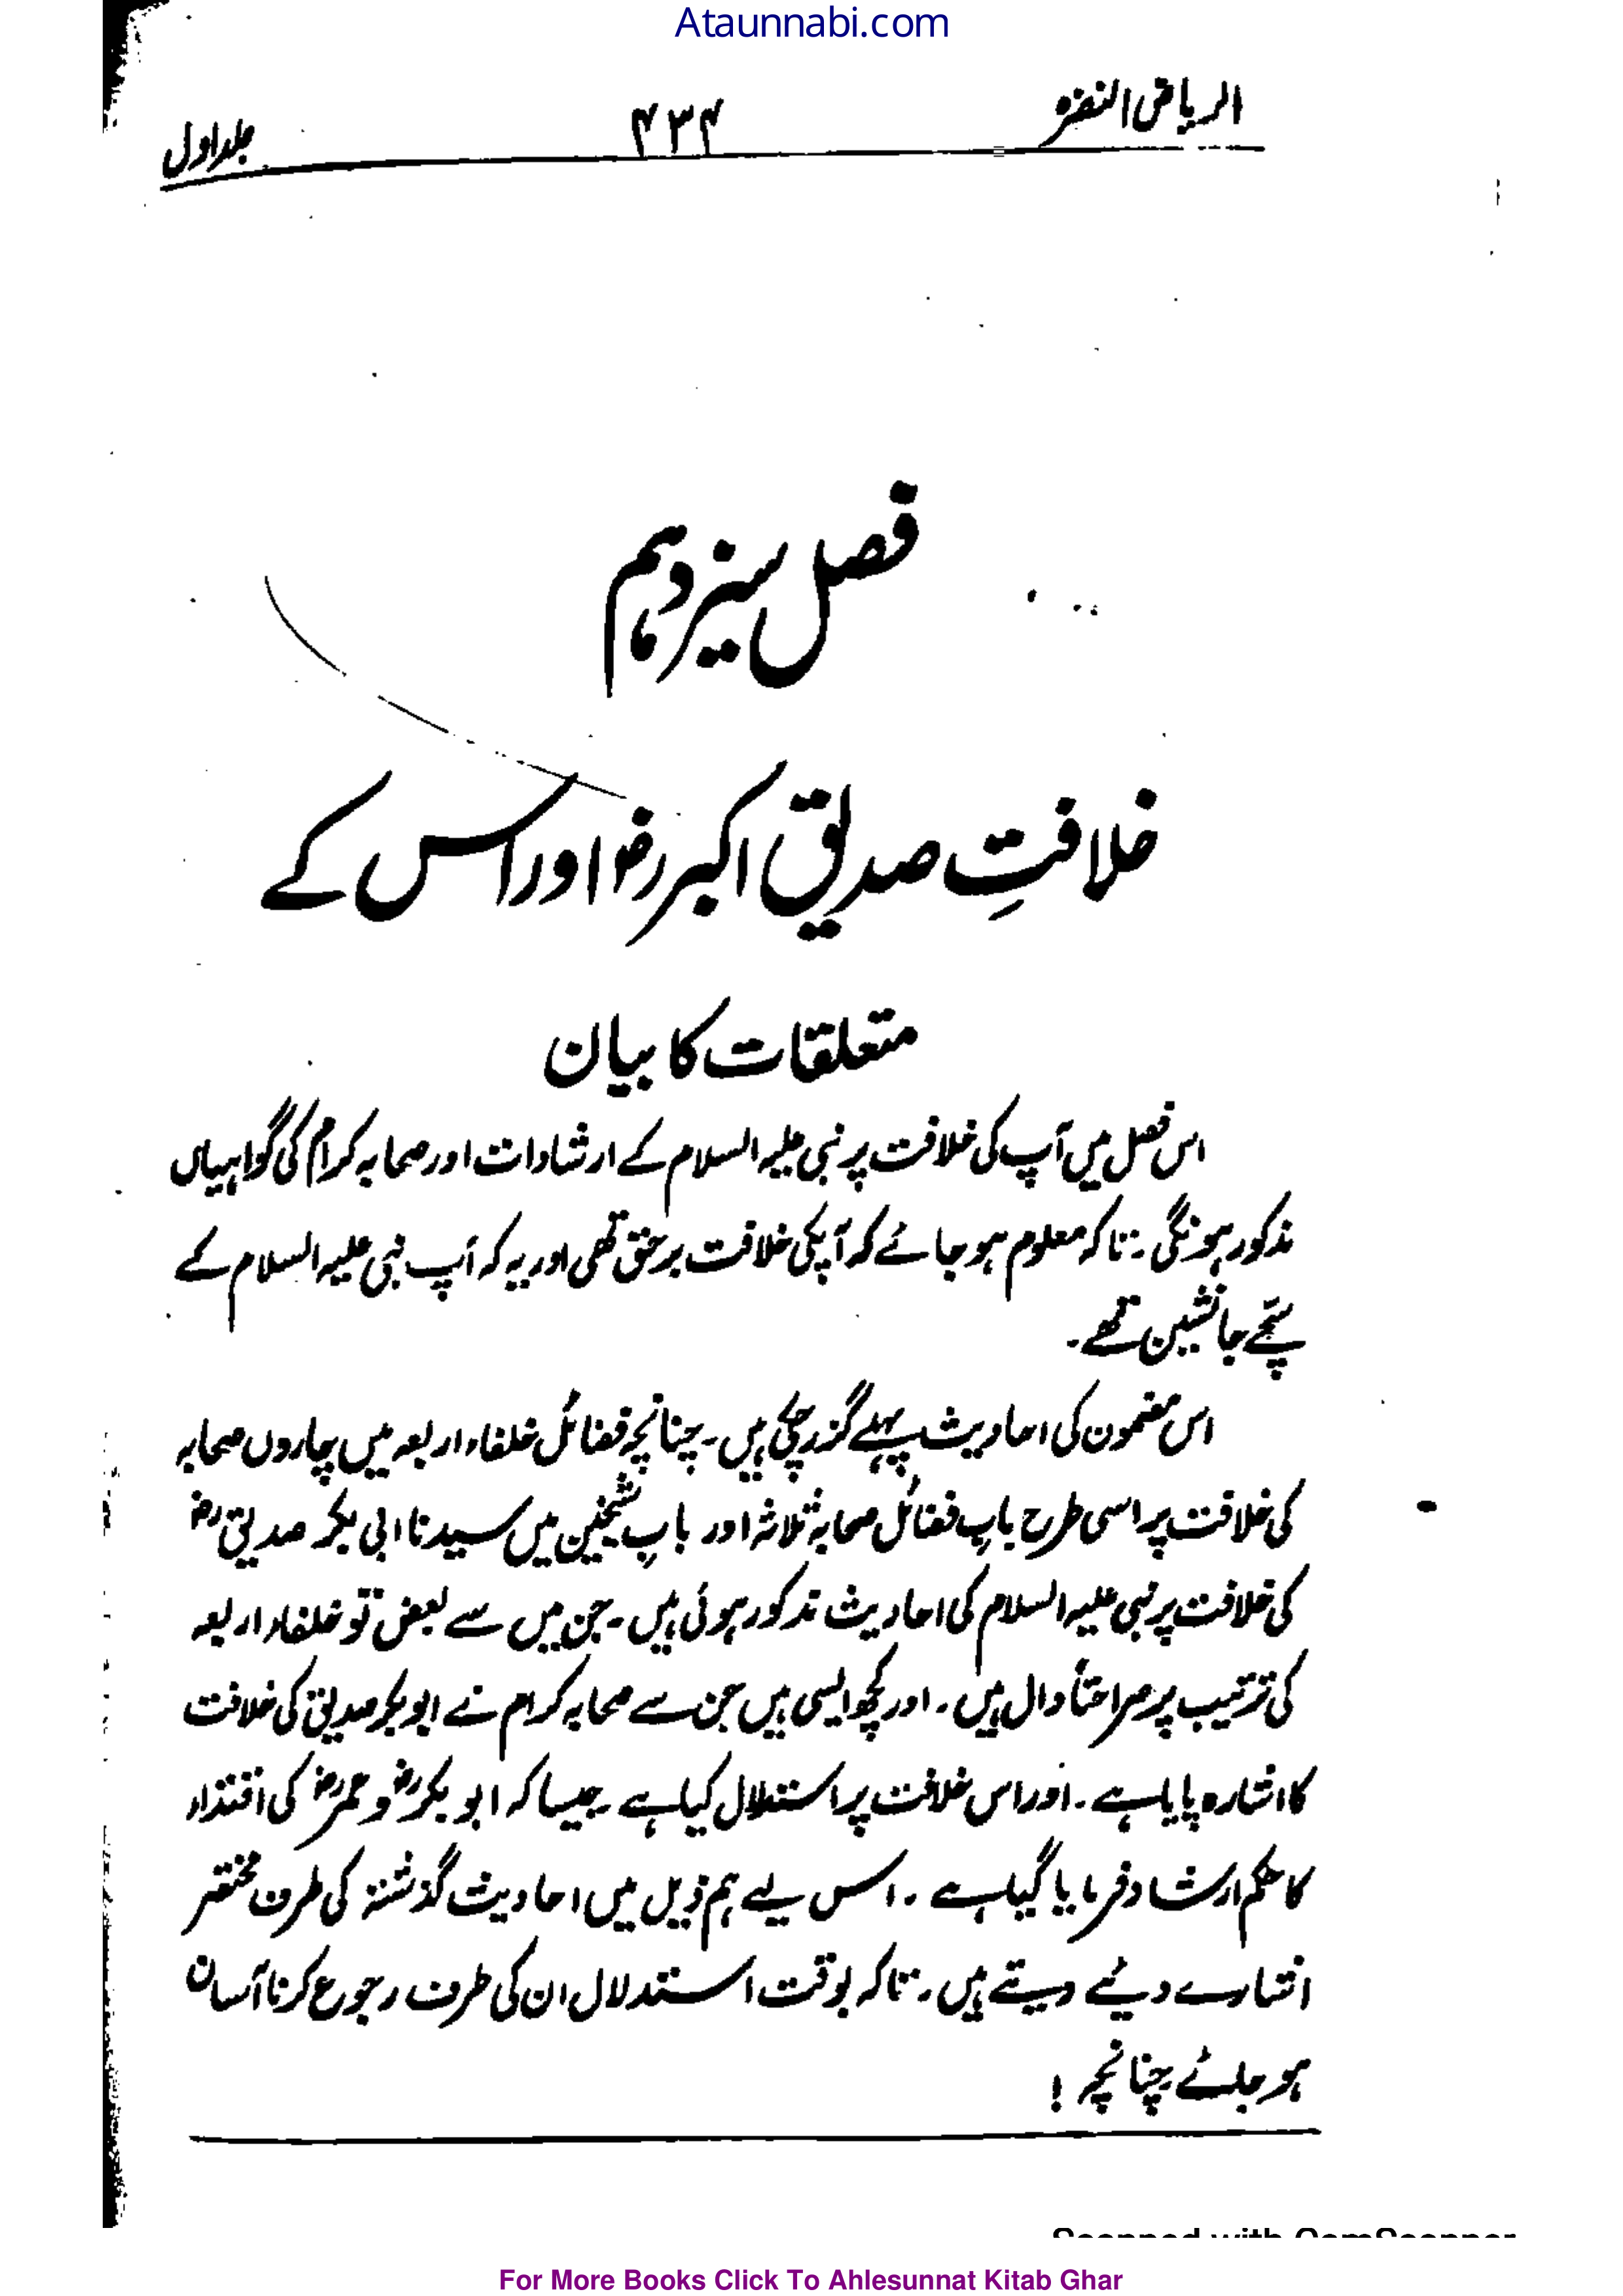 Ataunnabi.com
الریاض النضرہ
۴۳۴
جلد اول
فصل سیزدہم
خلافتِ صدیق اکبر رضؓ اور اس کے
متعلقات کا بیان
اس فصل میں آپ کی خلافت پر نبی علیہ السلام کے ارشادات اور صحابہ کرام کی گواہیاں
مذکور ہونگی۔ تاکہ معلوم ہو جائے کہ آپکی خلافت برحق تھی اور یہ کہ آپ نبی علیہ السلام کے
سچّے جانشین تھے۔
اس مضمون کی احادیث پہلے گزر چکی ہیں۔ چنانچہ فضائل خلفاء اربعہ میں چاروں صحابہ
کی خلافت پر اسی طرح بابِ فضائل صحابہ ثلاثہ اور بابِ شیخین میں سیدنا ابی بکر صدیق رضؓ
کی خلافت پر نبی علیہ السلام کی احادیث مذکور ہوئی ہیں۔ جن میں سے بعض تو خلفاء اربعہ
کی ترتیب پر صراحتاً دال ہیں۔ اور کچھ ایسی ہیں جن سے صحابہ کرام نے ابوبکر صدیق کی خلافت
کا اشارہ پایا ہے۔ اور اس خلافت پر استدلال کیا ہے۔ جیسا کہ ابو بکر رضؓ و عمر رضؓ کی اقتداء
کا حکم ارشاد فرمایا گیا ہے۔ اس لیے ہم ذیل میں احادیث گذشتہ کی طرف مختصر
اشارے دئیے دیتے ہیں۔ تاکہ بوقت استدلال ان کی طرف رجوع کرنا آسان
ہو جائے چنانچہ !
Scanned with CamScanner
For More Books Click To Ahlesunnat Kitab Ghar